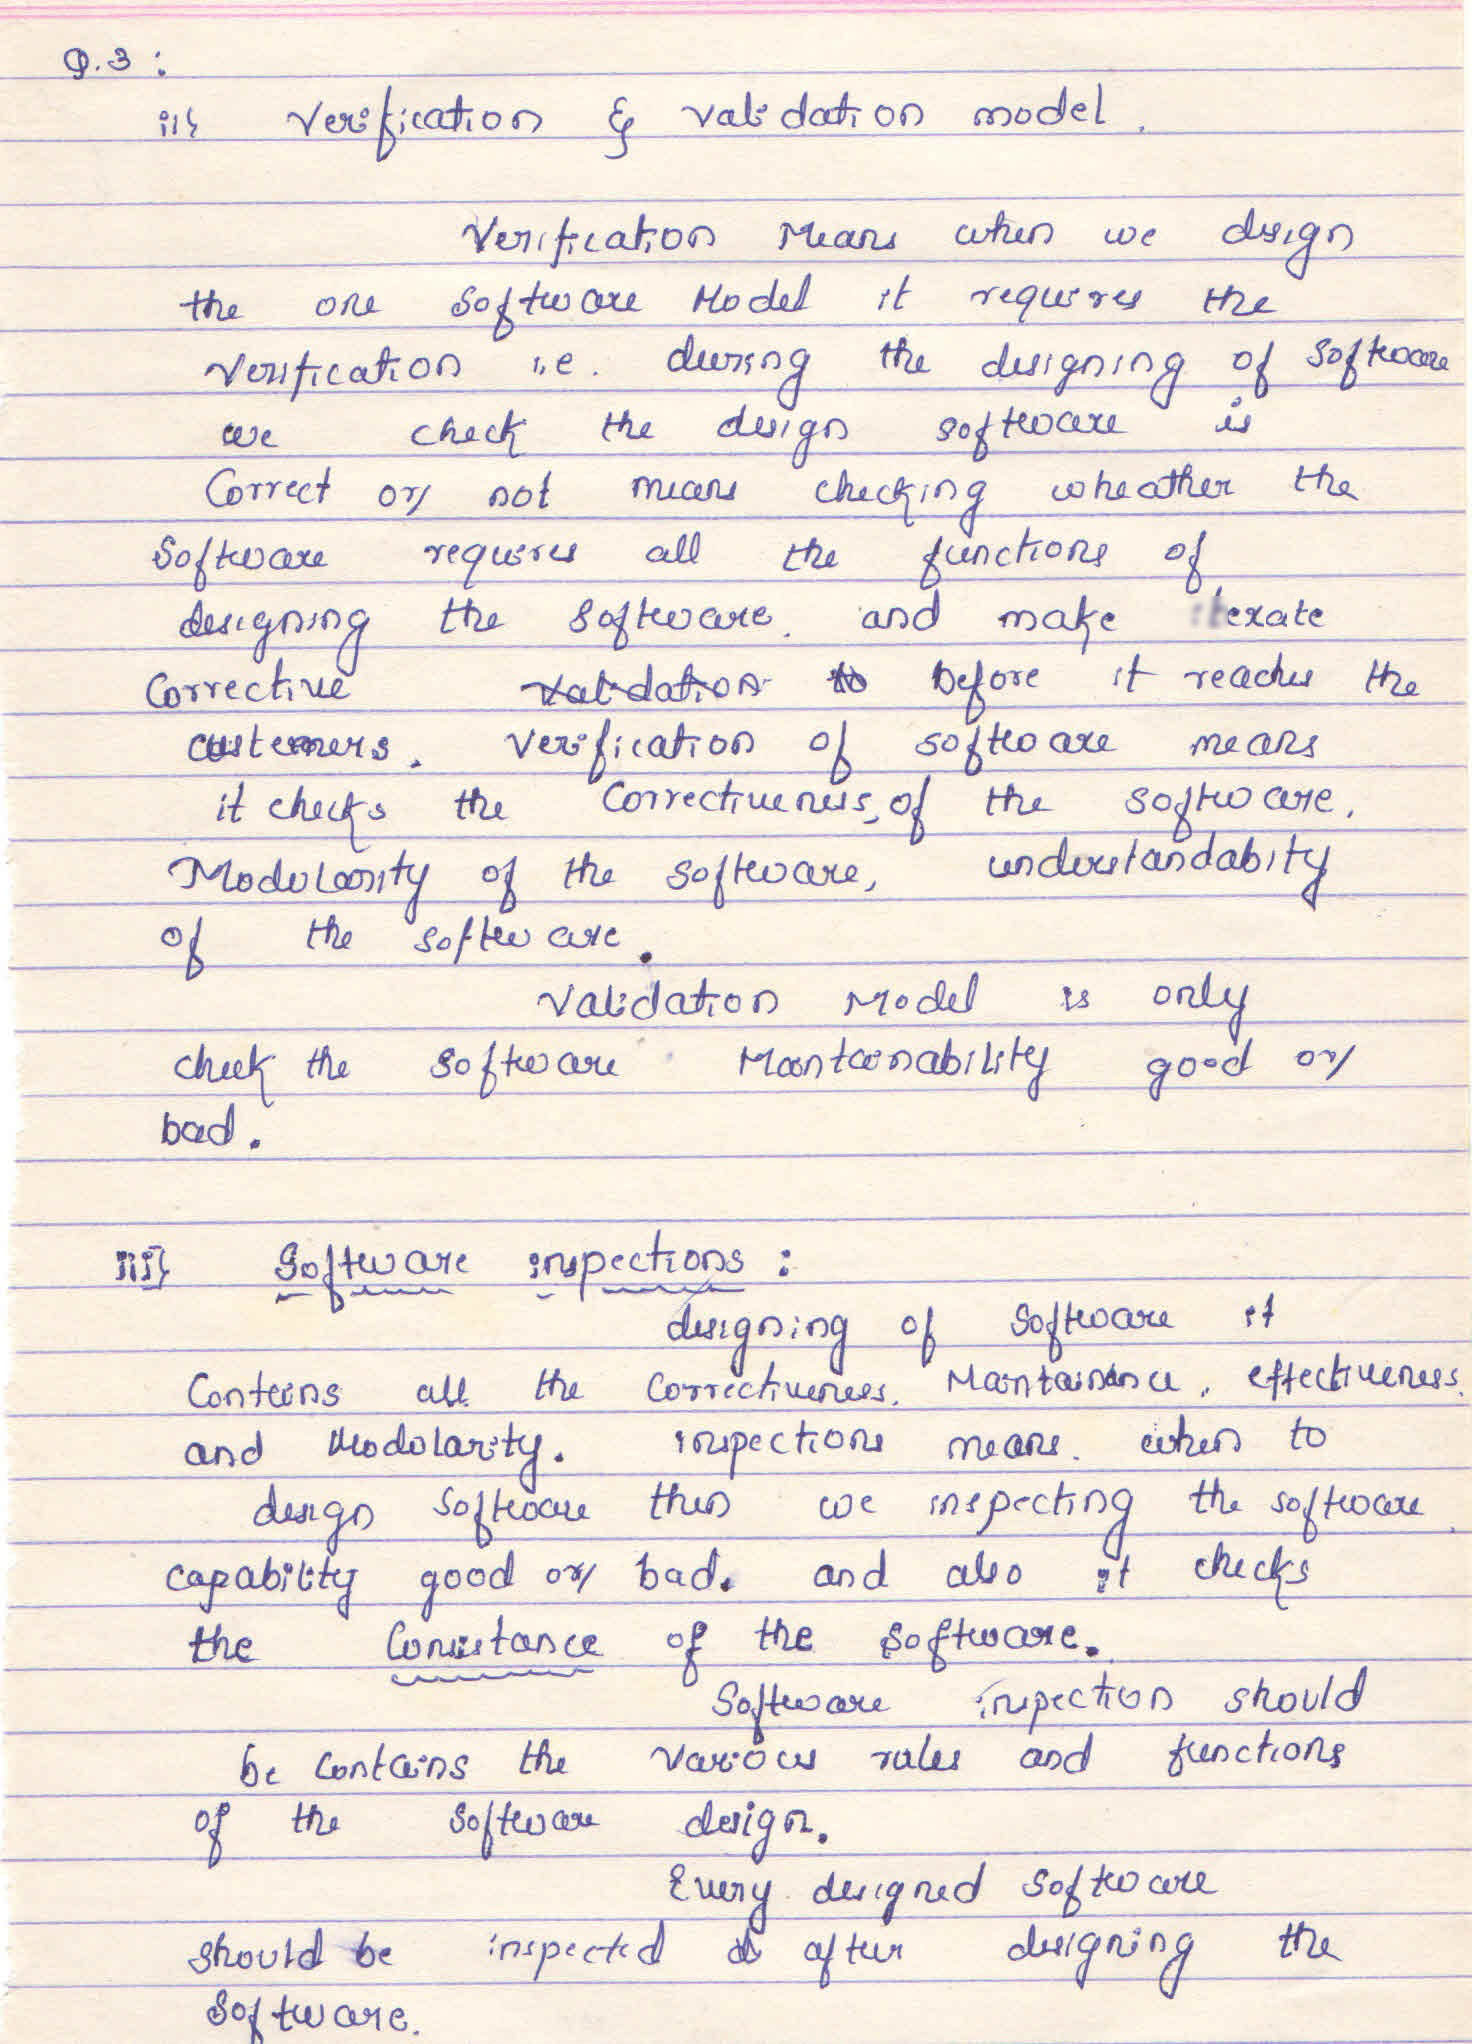 Q.3 :
ii} Verification & Validation model.
Verification Means when we design
the one software Model it requires the
Verification i.e. during the designing of software
we check the design software is
Correct or not means checking wheather the
Software requires all the functions of
designing the software. and make iterate
Corrective Validation to before it reaches the
customers. Verification of software means
it checks the Correctiveness, of the software.
Modularity of the software, understandabity
of the software.
Validation Model is only
check the software Maintainability good or
bad.
iii} Software inspections :
designing of software it
Contains all the Correctiveness. Maintainance, effectiveness.
and Modularity. inspections means. when to
design software then we inspecting the software
capability good or bad. and also it checks
the Consistance of the software.
Software inspection should
be contains the various rules and functions
of the software design.
Every designed software
should be inspected after designing the
software.